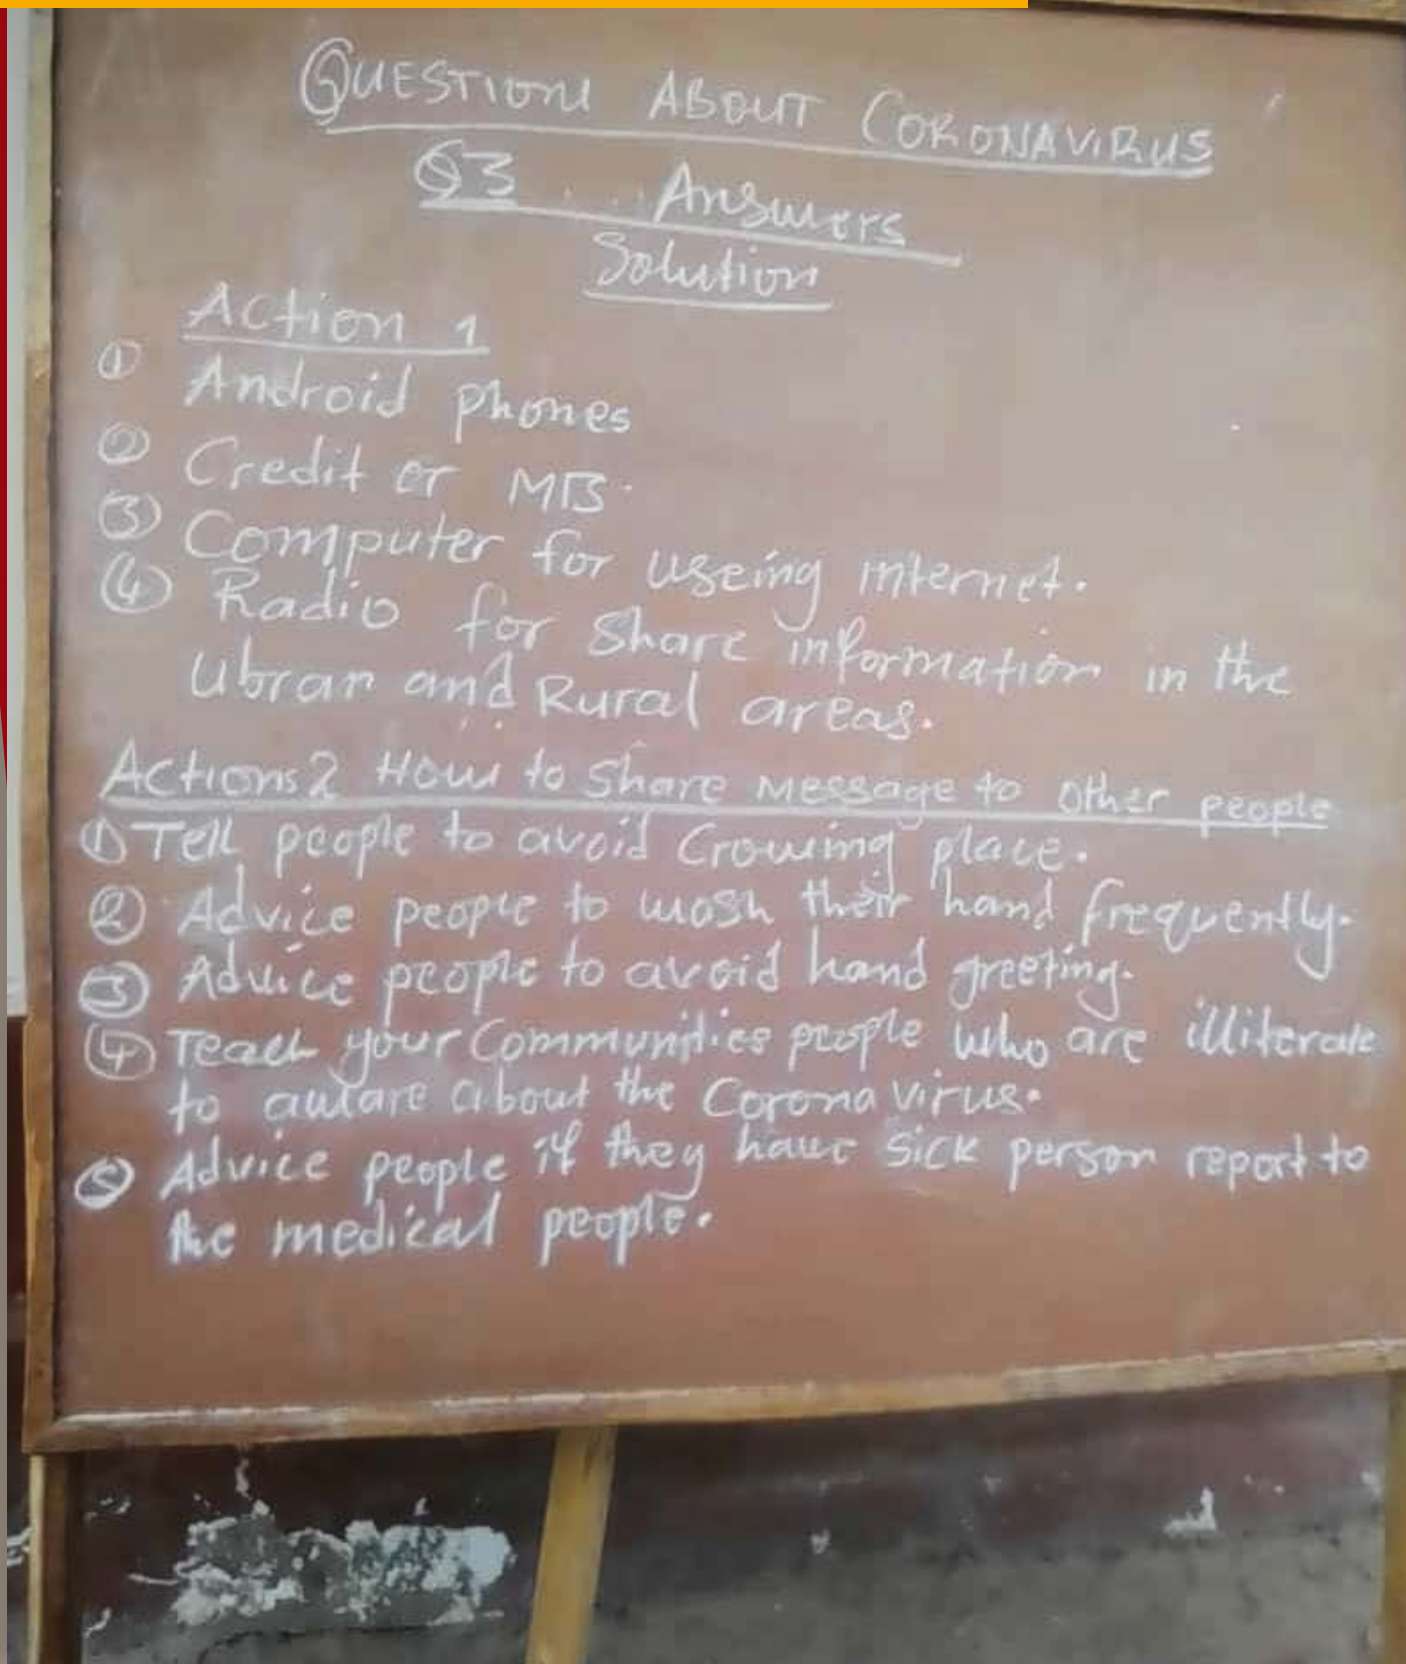 QUESTIONS ABOUT CORONAVIRUS
Q3 ..... Answers
Solution
Action 1
① Android phones
② Credit or MB.
③ Computer for useing internet.
④ Radio for Share information in the
Ubran and Rural areas.
Actions 2 How to Share message to other people
① Tell people to avoid Crowing place.
② Advice people to wash their hand frequently.
③ Advice people to avoid hand greeting.
④ Teach your Communities people who are illiterate
to aware about the Corona virus.
⑤ Advice people if they have sick person report to
the medical people.